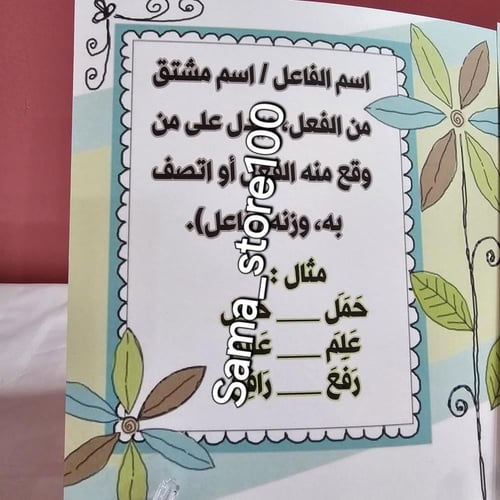 اسم الفاعل / اسم مشتق
من الفعل، على من
وقع منه الفعل أو اتصف
به، وزنه فاعل).
مثال :
حَمَلَ ___
عَلِمَ ___
رَفَعَ ___
Sama_store100